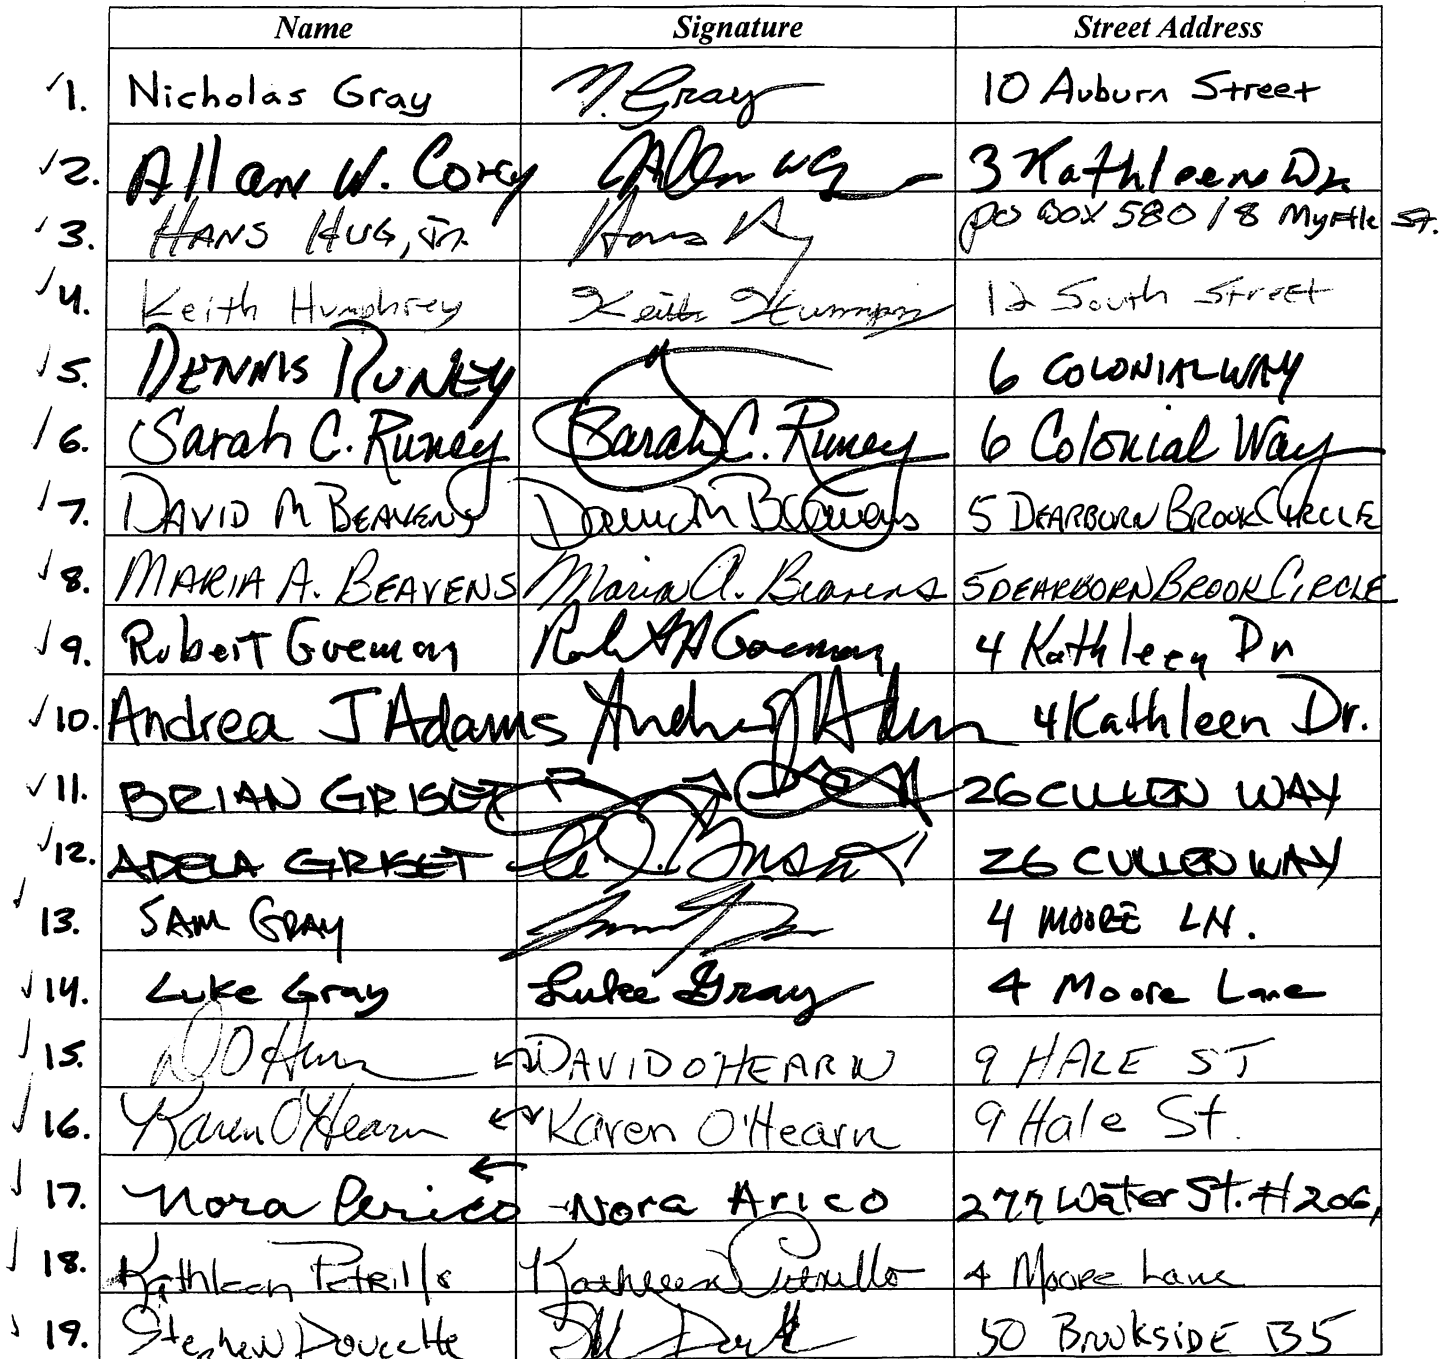 Name Signature Street Address
✓1. Nicholas Gray N. Gray 10 Auburn Street
✓2. Allan W. Corey Allen W C 3 Kathleen Dr
✓3. HANS HUG, Jr. Hans H po BOX 580 / 8 Myrtle St.
✓4. Keith Humphrey Keith Humphrey 12 South Street
✓5. DENNIS RUNEY 6 COLONIAL WAY
✓6. Sarah C. Runey Sarah C. Runey 6 Colonial Way
✓7. DAVID M BEAVENS David M Beavens 5 DEARBORN BROOK CIRCLE
✓8. MARIA A. BEAVENS Maria A. Beavens 5 DEARBORN BROOK CIRCLE
✓9. Robert Guemon 4 Kathleen Dr
✓10. Andrea J Adams Andrea J Adams 4 Kathleen Dr.
✓11. BRIAN GRISET 26 CULLEN WAY
✓12. ADELA GRISET 26 CULLEN WAY
✓13. SAM GRAY 4 MOORE LN.
✓14. Luke Gray Luke Gray 4 Moore Lane
✓15. D O'Hearn DAVID O'HEARN 9 HALE ST
✓16. Karen O'Hearn Karen O'Hearn 9 Hale St.
✓17. Nora Arico Nora Arico 277 Water St. #206,
✓18. Kathleen Petrillo Kathleen Petrillo 4 Moore Lane
✓19. Stephen Doucette 50 BROOKSIDE B5